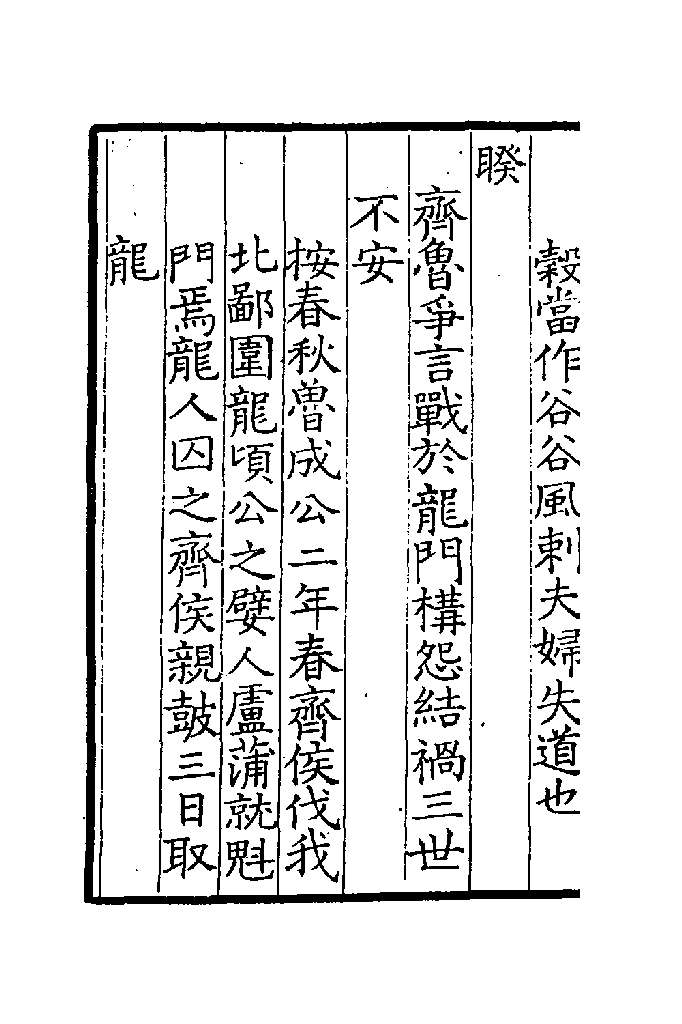 穀當作谷谷風刺夫婦失道也
睽
齊魯爭言戰於龍門構怨結禍三世
不安
按春秋魯成公二年春齊侯伐我
北鄙圍龍頃公之嬖人盧蒲就魁
門焉龍人囚之齊侯親鼓三日取
龍